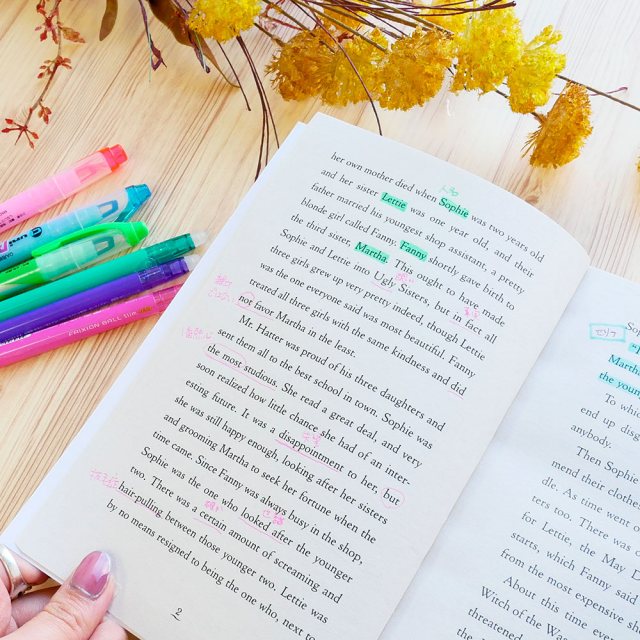 her own mother died when Sophie was two years old
and her sister Lettie was one year old, and their
father married his youngest shop assistant, a pretty
blonde girl called Fanny. Fanny shortly gave birth to
the third sister, Martha. This ought to have made
Sophie and Lettie into Ugly Sisters, but in fact all
three girls grew up very pretty indeed, though Lettie
was the one everyone said was most beautiful. Fanny
treated all three girls with the same kindness and did
not favor Martha in the least.
Mr. Hatter was proud of his three daughters and
sent them all to the best school in town. Sophie was
the most studious. She read a great deal, and very
soon realized how little chance she had of an inter-
esting future. It was a disappointment to her, but
she was still happy enough, looking after her sisters
and grooming Martha to seek her fortune when the
time came. Since Fanny was always busy in the shop,
Sophie was the one who looked after the younger
two. There was a certain amount of screaming and
hair-pulling between those younger two. Lettie was
by no means resigned to being the one who, next to
2
Martha
the young
To whic
end up disg
anybody.
Then Sophie
mend their clothe
dle. As time went o
ters too. There was
for Lettie, the May D
starts, which Fanny said
from the most expensive s
About this time
Witch of the W
threatened
FRIXION BALL